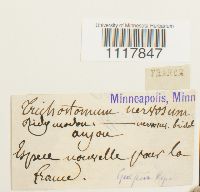 University of Minnesota Herbarium
1117847
FRANCE
Minneapolis, Minn
Trichostomum nervosum
anjou
Espece nouvelle pour la
france.